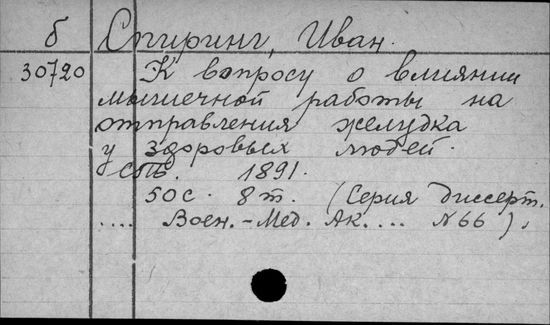 б Спиринг, Иван.
30720 К вопросу о влиянии
мышечной работы на
отправления желудка
у здоровых людей.
СПб. 1891.
50с. 8т. (Серия диссерт.
.... Воен.-Мед. Ак.... N66).